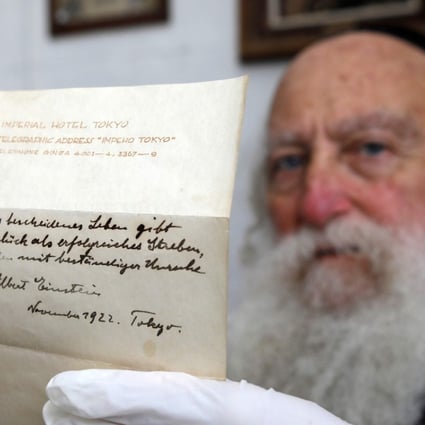 IMPERIAL HOTEL TOKYO
TELEGRAPHIC ADDRESS "IMPEHO TOKYO"
TELEPHONE GINZA
bescheidenes Leben gibt
lück als erfolgreiches Streben,
en mit beständiger Unruhe
Albert Einstein
November 1922. Tokyo.